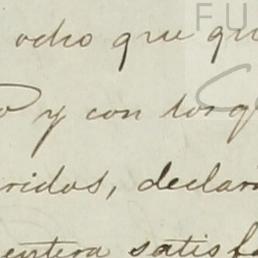 FU
ocho que qu
o y con los q
ridos, declar
entera satisf